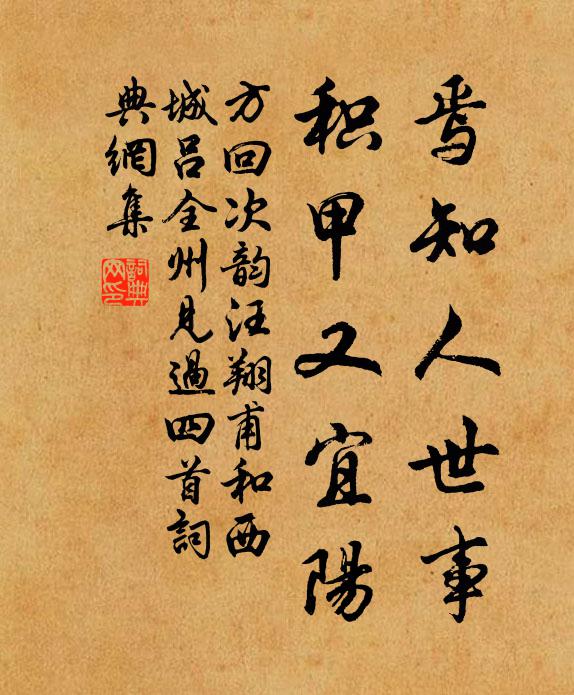 焉知人世事
积甲又宜陽
方回次韵汪翔甫和西
城吕全州見過四首詞
典網集
詞典
网印